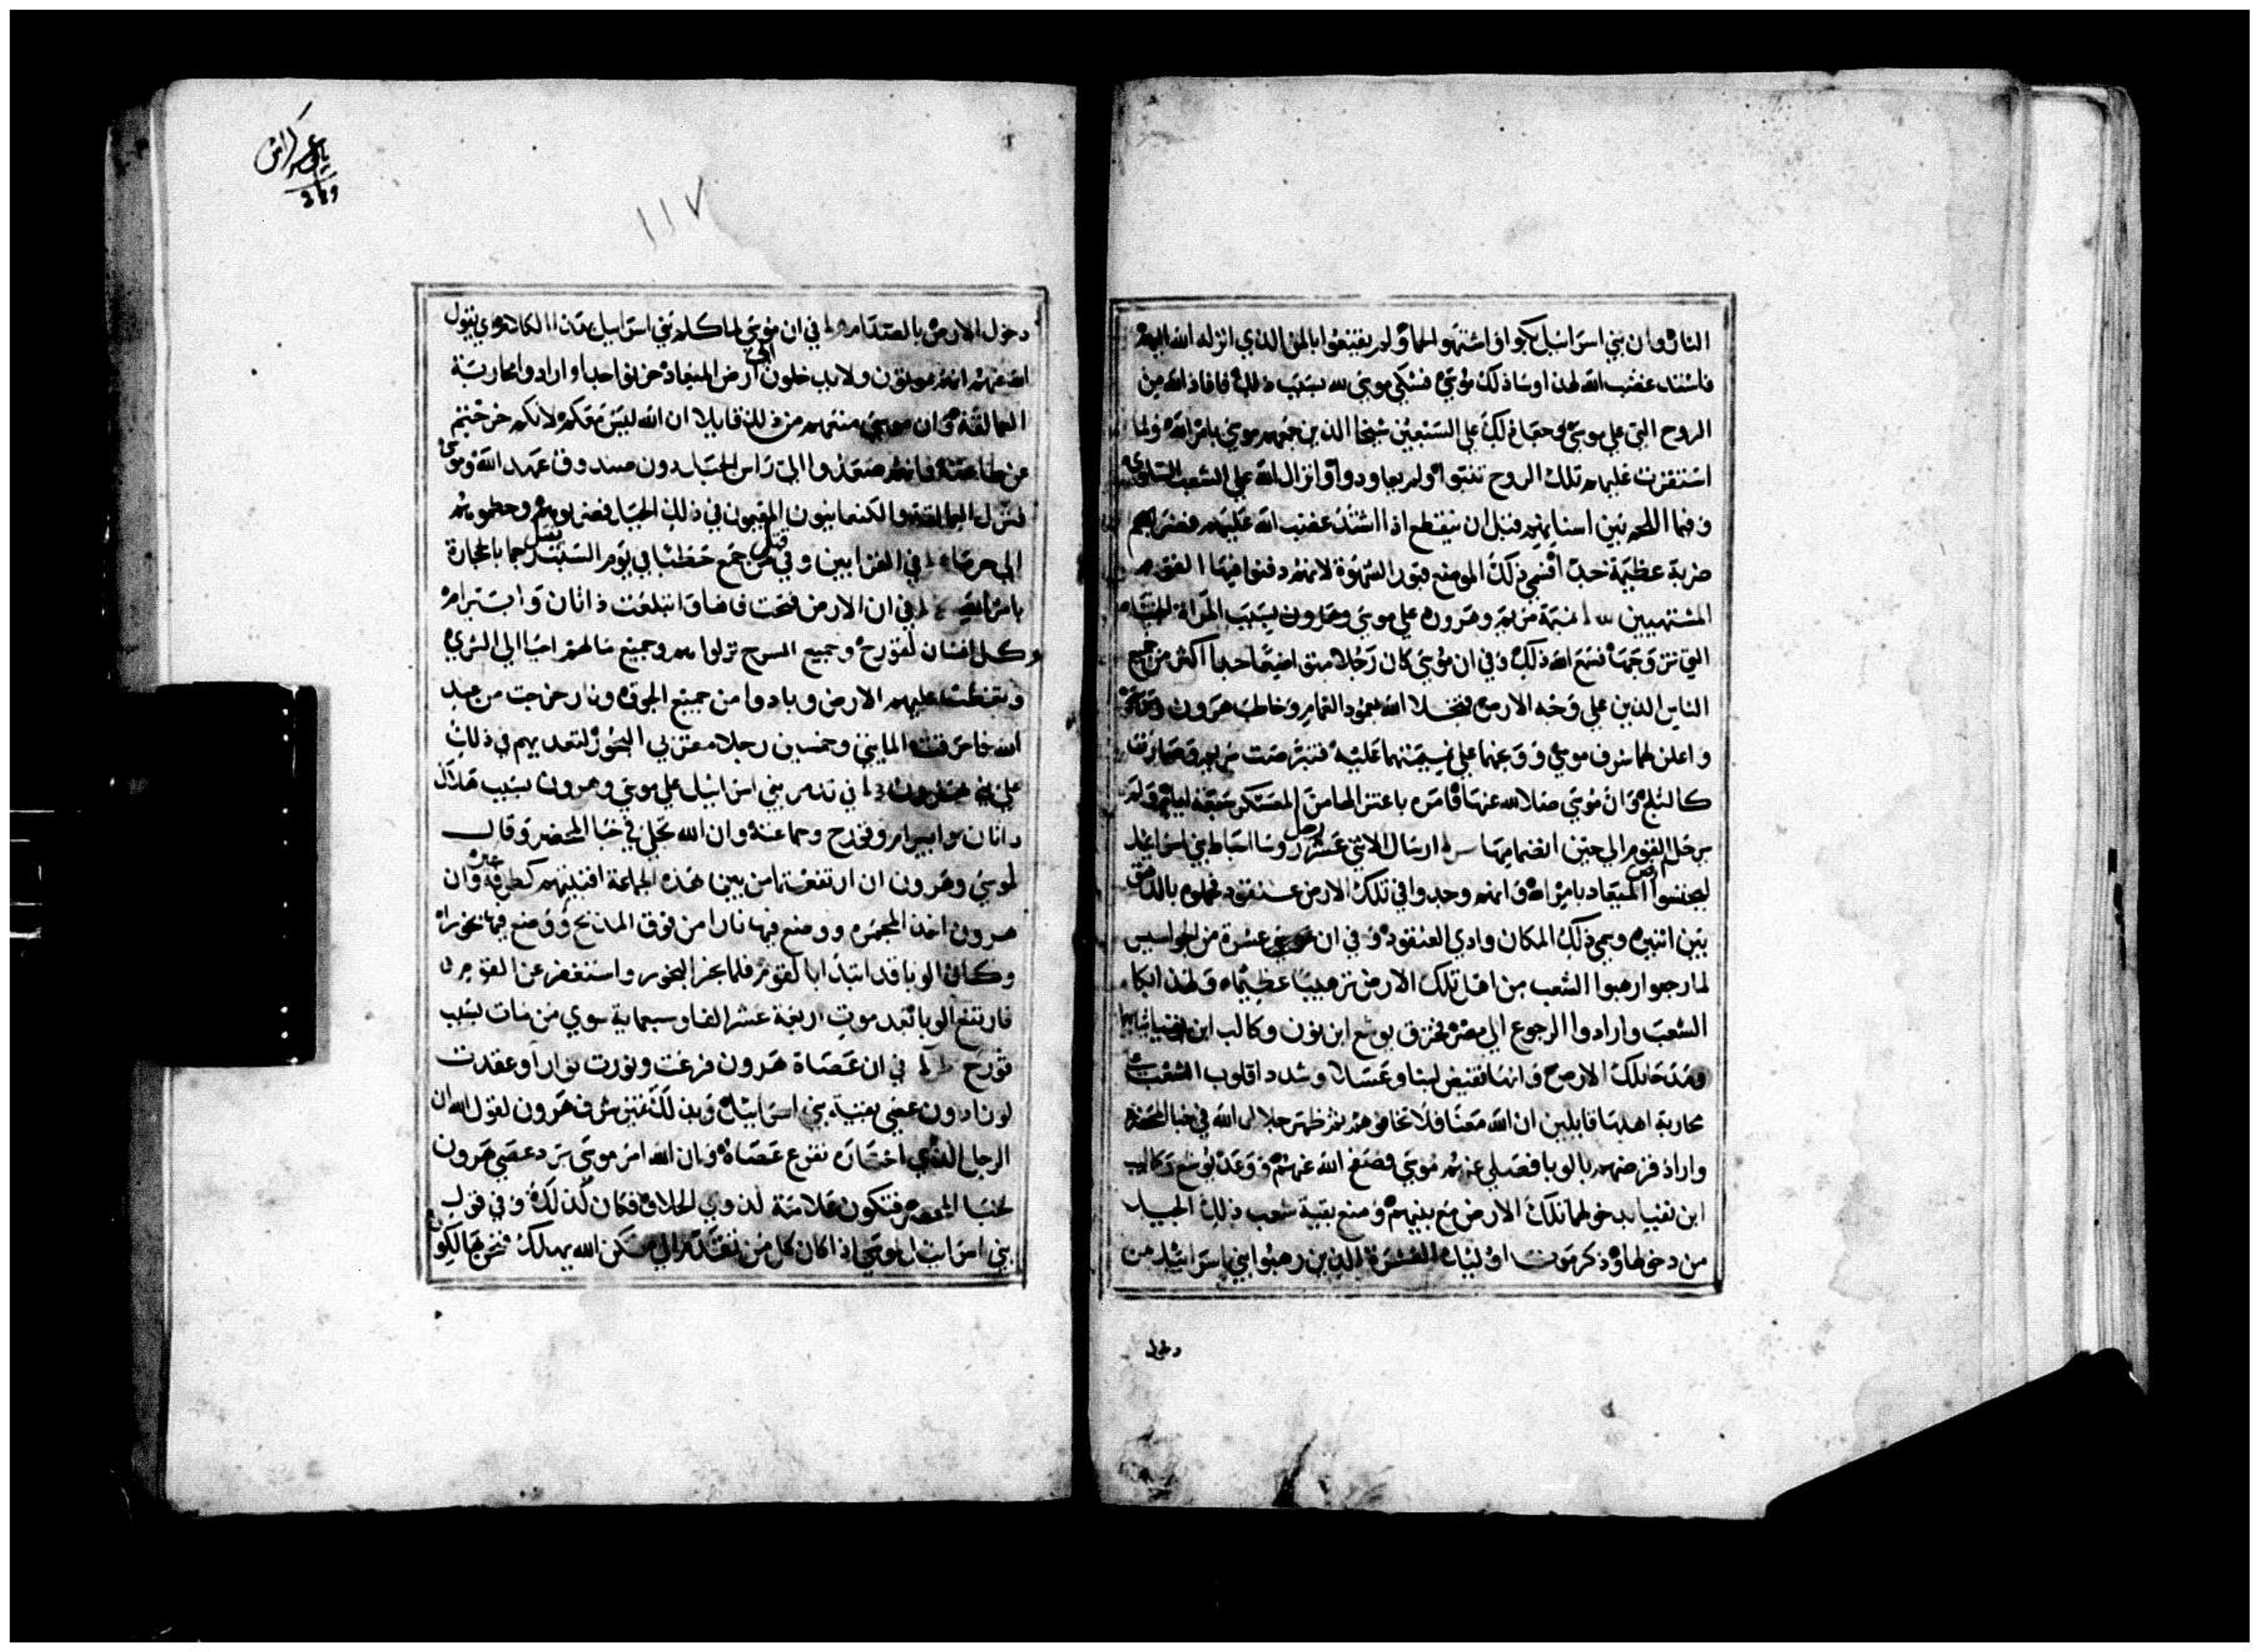 النار وان بني اسرائيل بكوا واشتهوا لحما ولم يقتنعوا بالمن الذي انزله الله اليهم
فاشتد غضب الله لهذا وساذلك موسي فشكي موسي لله بسبب ذلك فافاد الله من
الروح التي علي موسي علي السبعين شيخا الذين جمعهم موسي بامر الله ولما
استقرت عليهم تلك الروح تنبوا ولم يعاودوا وانزال الله علي الشعب السلوي
وفيما اللحم بين اسنانهم قبل ان ينقطع اذا اشتد غضب الله عليهم فضربهم
ضربة عظيمة جدا فسمي ذلك الموضع قبور الشهوة لانهم دفنوا فيها القوم
المشتهيين نميمة مريم وهرون علي موسي وهارون بسبب المراة الحبشية
التي تزوجها فسمع الله ذلك وفي ان موسي كان رجلا متواضعا جدا اكثر من جميع
الناس الذين علي وجه الارض فتجلا الله بعمود الغمام وخاطب هرون ومريم
واعلن لهما شرف موسي ووبخهما علي نميمتهما عليه فتبرصت مريم وصارت
كالثلج وان موسي صلا لله عنها فامره باعتزالها من المعسكر سبعة ايام ولم
يرحل القوم الي حين انضمامها ارسال الاثني عشر رجل روسا اسباط بني اسرائيل
ليجسوا ارض الميعاد بامر الله وانهم وجدوا في تلك الارض عنقود فحملوه بالدهق
بين اثنين وسمي ذلك المكان وادي العنقود وفي ان عشرة من الجواسيس
لما رجعوا ارهبوا الشعب من اهل تلك الارض ترهيبا عظيما ولهذا بكا
الشعب وارادوا الرجوع الي مصر فخزق يوشع ابن نون وكالب ابن يفنيا ثيابهما
ومدحا تلك الارض وانها تفيض لبنا وعسلا وشددا قلوب الشعب
محاربة اهلها قايلين ان الله معنا فلا تخافوهم ثم ظهر جلال الله في خبا المحضر
واراد قرضهم بالوبا فصلي عنهم موسي فصفح الله عنهم ووعد يوشع وكالب
ابن يفنيا بدخولهما تلك الارض مع بنيهم ومنع بقية شعب ذلك الجيل
من دخولها وذكر موت اوليك العشرة الذين رهبوا بني اسرائيل من
دخول
١١٧
دخول الارض بالصدام في ان موسي لما كلم بني اسرائيل بهذا الكلام
الله عنهم انهم يموتون ولا يدخلون الي ارض الميعاد حزنوا جدا وارادوا محاربة
العمالقة وان موسي منعهم من ذلك قايلا ان الله ليس معكم لانكم خرجتم
عن طاعته فانهم صعدوا الي راس الجبل بدون صندوق عهد الله وموسي
فنزل العمالقة والكنعانيون المقيمون في ذلك الجبل فضربوهم وحطموهم
الي حرما في القرابين وفي قتل من جمع حطبا في يوم السبت رجما بالحجارة
بامر الله في ان الارض فتحت فاها وابتلعت داثان وابيرام
وكل انسان لقورح وجميع السرح نزلوا هم وجميع ما لهم احيا الي الثري
وتغطت عليهم الارض وبادوا من جميع الجوق ونار خرجت من عند
الله فاحرقت المايتين وخمسين رجلا مقربي البخور لتعديهم في ذلك
علي هرون في تذمر بني اسرائيل علي موسي وهرون بسبب هلاك
داثان وابيرام وقورح وجماعته وان الله تجلي في خبا المحضر وقال
لموسي وهرون ان ارتفعتما من بين هذه الجماعة افنيتهم كطرفة عين وان
هرون اخذ المجمره ووضع فيها نارا من فوق المذبح ووضع فيها بخورا
وكان الوبا قد ابتدا بالقوم فلما بخر البخور واستغفر عن القوم
فارتفع الوبا بعد موت اربعة عشر الفا وسبماية سوي من مات بسبب
قورح في ان عصاة هرون فرعت ونورت نوارا وعقدت
لوزا دون عصي بقية بني اسرائيل وبذلك تميز شرف هرون لقول الله ان
الرجل الذي اختاره تفرع عصاه وان الله امر موسي برد عصي هرون
لخبا المحضر فتكون علامة لذوي الخلاف فكان كذلك وفي قول
بني اسرائيل لموسي اذا كان كل من تقدم الي مسكن الله يهلك فنحن هالكون